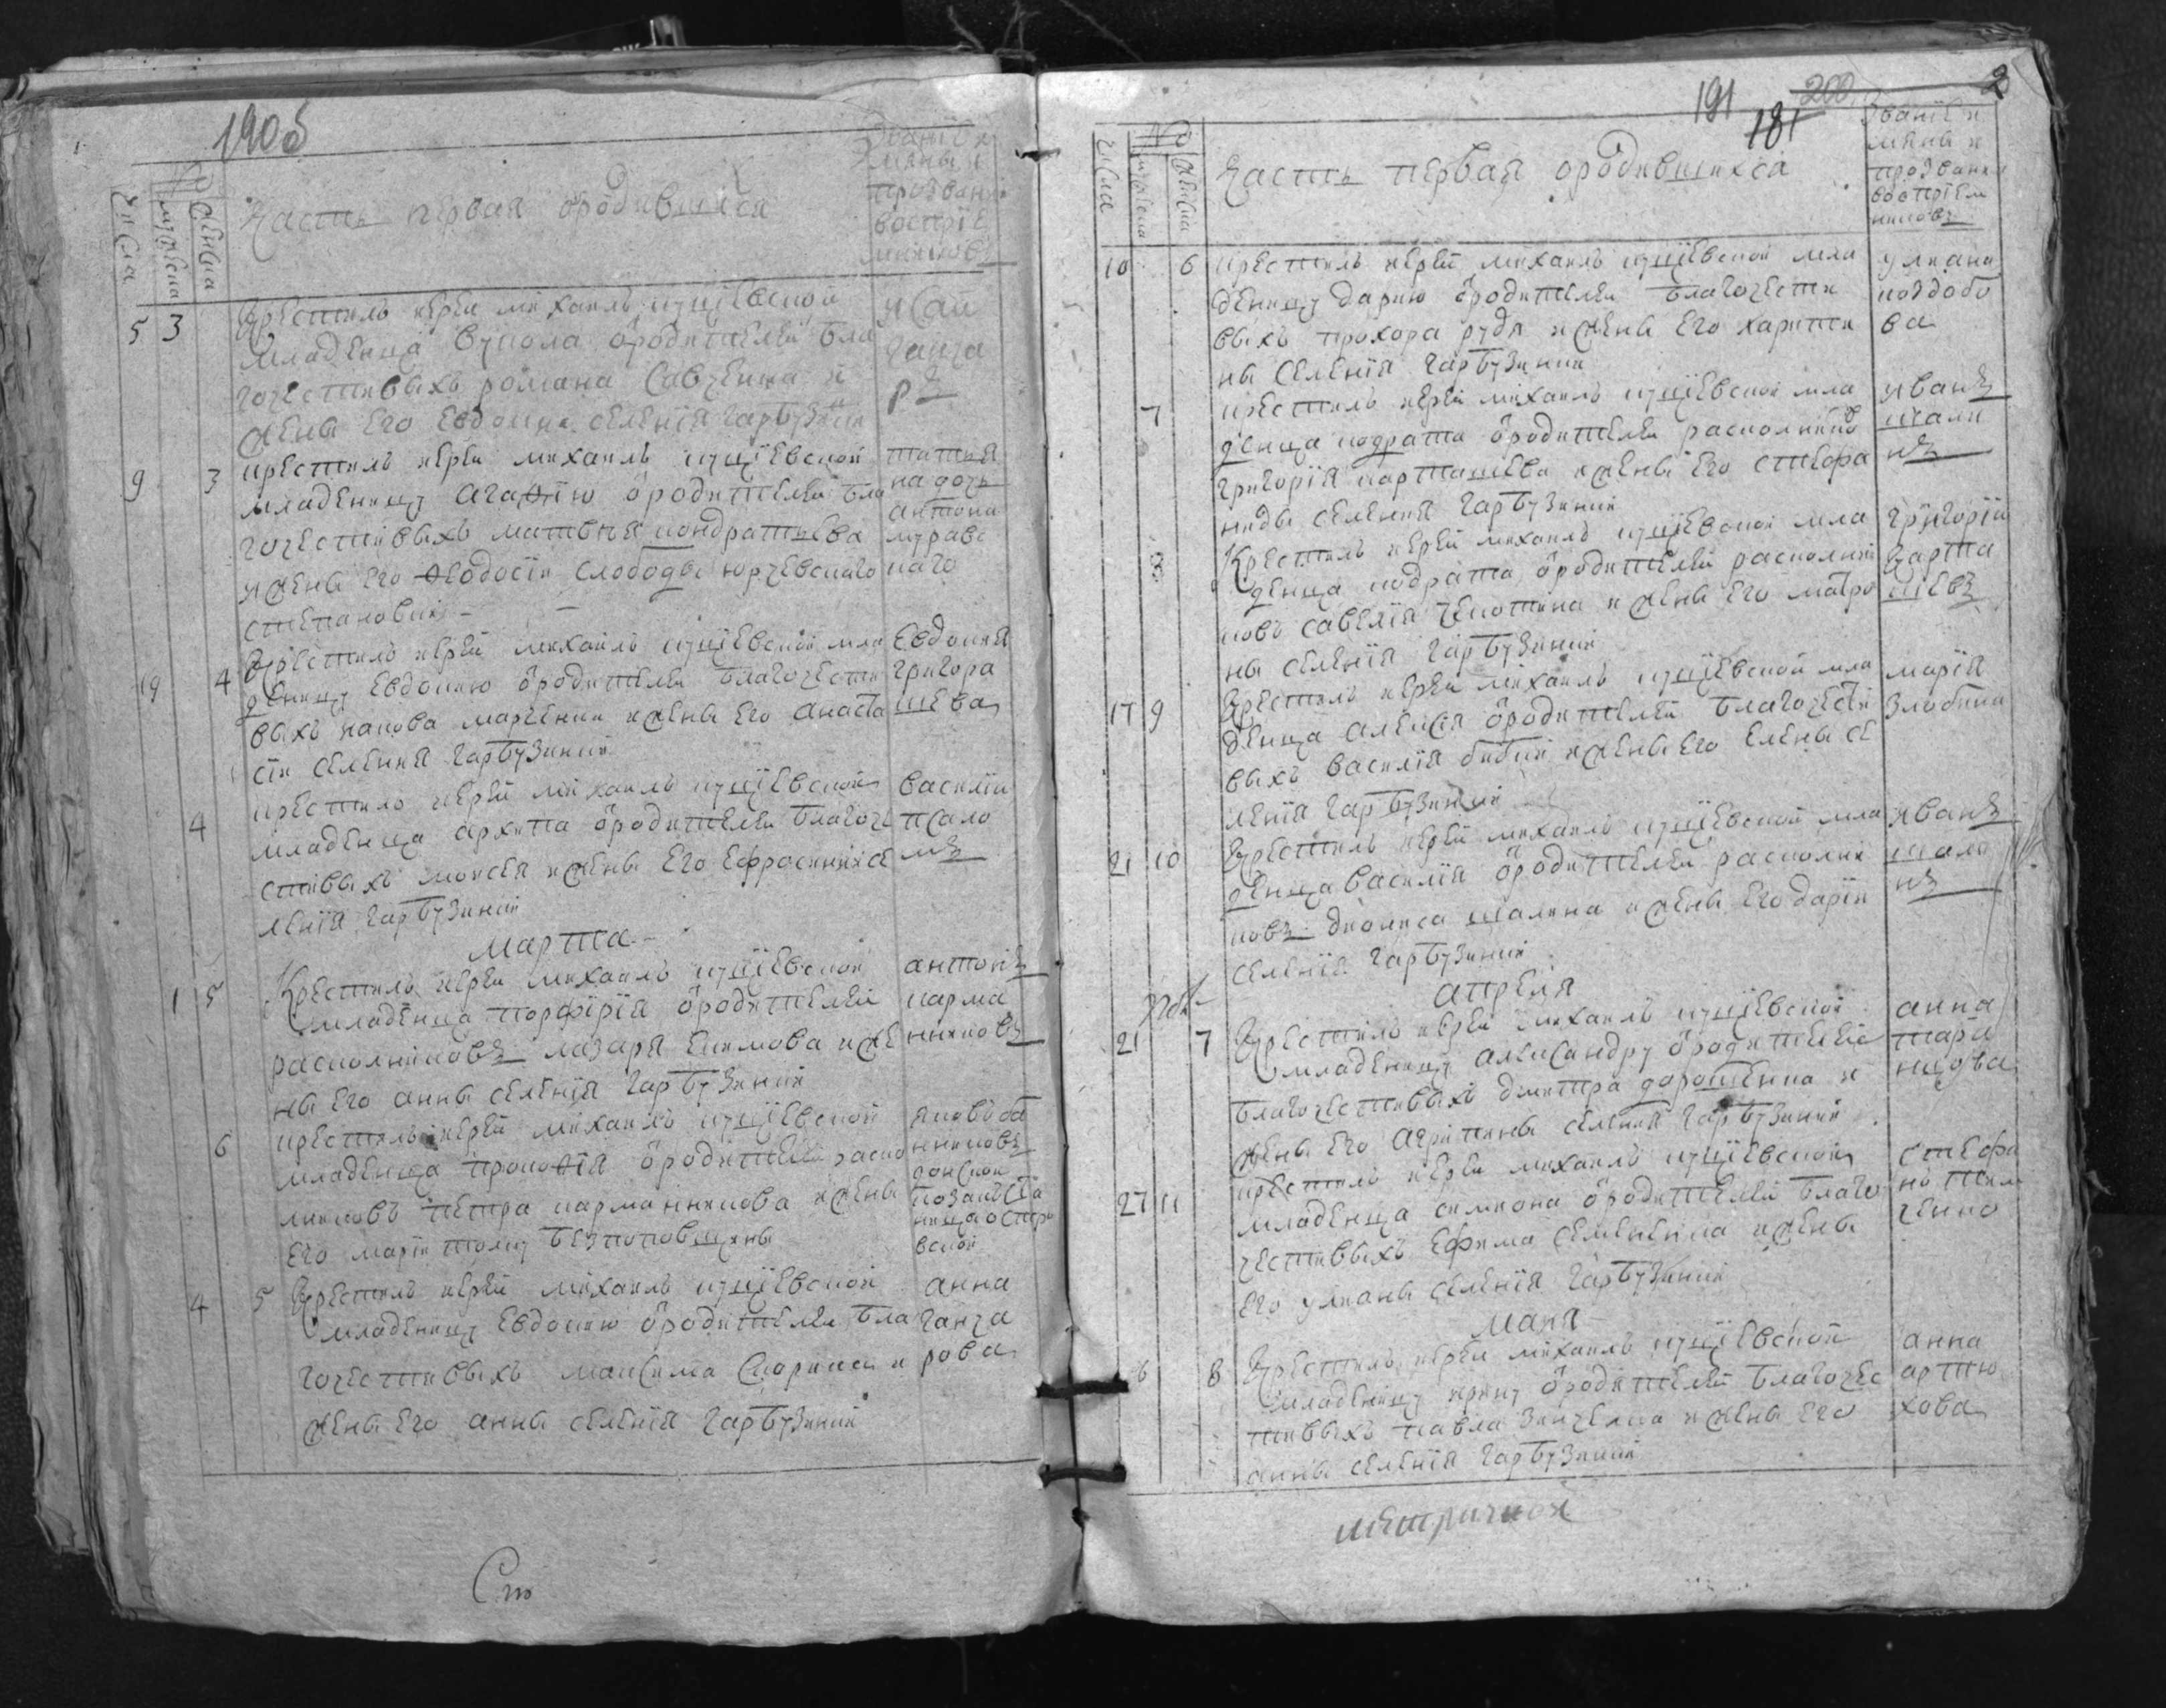 190
Званiе и
имяны и
прозван
воспрiе
мниковъ
№
числа
мужеска
женска
Часть первая ородившихся
5 3 Крестилъ иерей михаилъ кущiевской
младенца вукола ѿродителей бла
гочестивыхъ романа Савченка и
жены его Евдокии селенiя гарбузинки
исаи
ганча
ръ
9 3 крестилъ иерей михаилъ кущiевской
младеницу агаѳiю ѿродителей бла
гочестивыхъ матвея кондратьева
и жены его ѳеодосiи слободы юрчевскаго
степановки
татия
на дочь
антона
муравс
каго
19 4 Крестилъ иерей михаилъ кущiевской мла
деницу Евдокию ѿродителей благочести
выхъ иакова марченки и жены его анаста
сiи селения гарбузинки
Евдокия
григора
шева
4 крестилъ иерей михаилъ кущiевской
младенца архипа ѿродителей благоче
стивыхъ моисея и жены его Ефросинии се
ленiя гарбузинки
василiи
псало
мъ
марта
1 5 Крестилъ иерей михаилъ кущiевской
младенца порфiрiя ѿродителей
раскольниковъ лазаря Екимова и же
ны его анны селенiя гарбузинки
антонъ
карма
нниковъ
6 крестилъ иерей михаилъ кущiевской
младенца прокоѳiя ѿродителей раско
лниковъ петра карманникова и жены
его марiи толку безпоповщины
яковъ
нниковъ
донской
козакъ ста
ница остро
вской
4 5 Крестилъ иерей михаилъ кущiевской
младеницу Евдокию ѿродителей бла
гочестивыхъ максима Скорика и
жены его анны селенiя гарбузинки
анна
ганча
рова
Сто
191 200 2
181
Званiе и
имяны и
прозвани
воспрiем
никовъ
№
числа
мужеска
женска
Часть первая ородившихся
10 6 крестилъ иерей михаилъ кущiевской мла
деницу дарию ѿродителей благочести
выхъ прохора рудя и жены его харити
ны селенiя гарбузинки
улиана
коздобо
ва
7 крестилъ иерей михаилъ кущiевской мла
денца кодрата ѿродителей расколников
григорiя карташева и жены его стефа
ниды селения гарбузинки
иванъ
шали
нъ
8 Крестилъ иерей михаилъ кущiевской мла
денца кодрата ѿродителей расколни
ковъ савелiя чекотина и жены его матро
ны селенiя гарбузинки
григорiй
карта
шевъ
17 9 Крестилъ иерей михаилъ кущiевской мла
денца алексiя ѿродителей благочести
выхъ василiя бабки и жены его елены се
ленiя гарбузинки
марiя
злобина
21 10 Крестилъ иерей михаилъ кущiевской мла
денца василiя ѿродителей расколни
ковъ диониса шалина и жены его дарiи
селенiя гарбузинки
иванъ
шали
нъ
апреля
21 7 Крестилъ иерей михаилъ кущiевской
младеницу александру ѿродителей
благочестивыхъ дмитра дорошенка и
жены его агрипины селения гарбузинки
анна
тара
нцова
27 11 крестилъ иерей михаилъ кущiевской
младенца симиона ѿродителей благо
честивыхъ Ефима Семененка и жены
его улианы селенiя гарбузинки
стефа
нъ
ченко
маиа
6 8 Крестилъ иерей михаилъ кущiевской
младеницу ирину ѿродителей благочес
тивыхъ павла зинченка и жены его
анны селенiя гарбузинки
анна
артю
хова
метричной